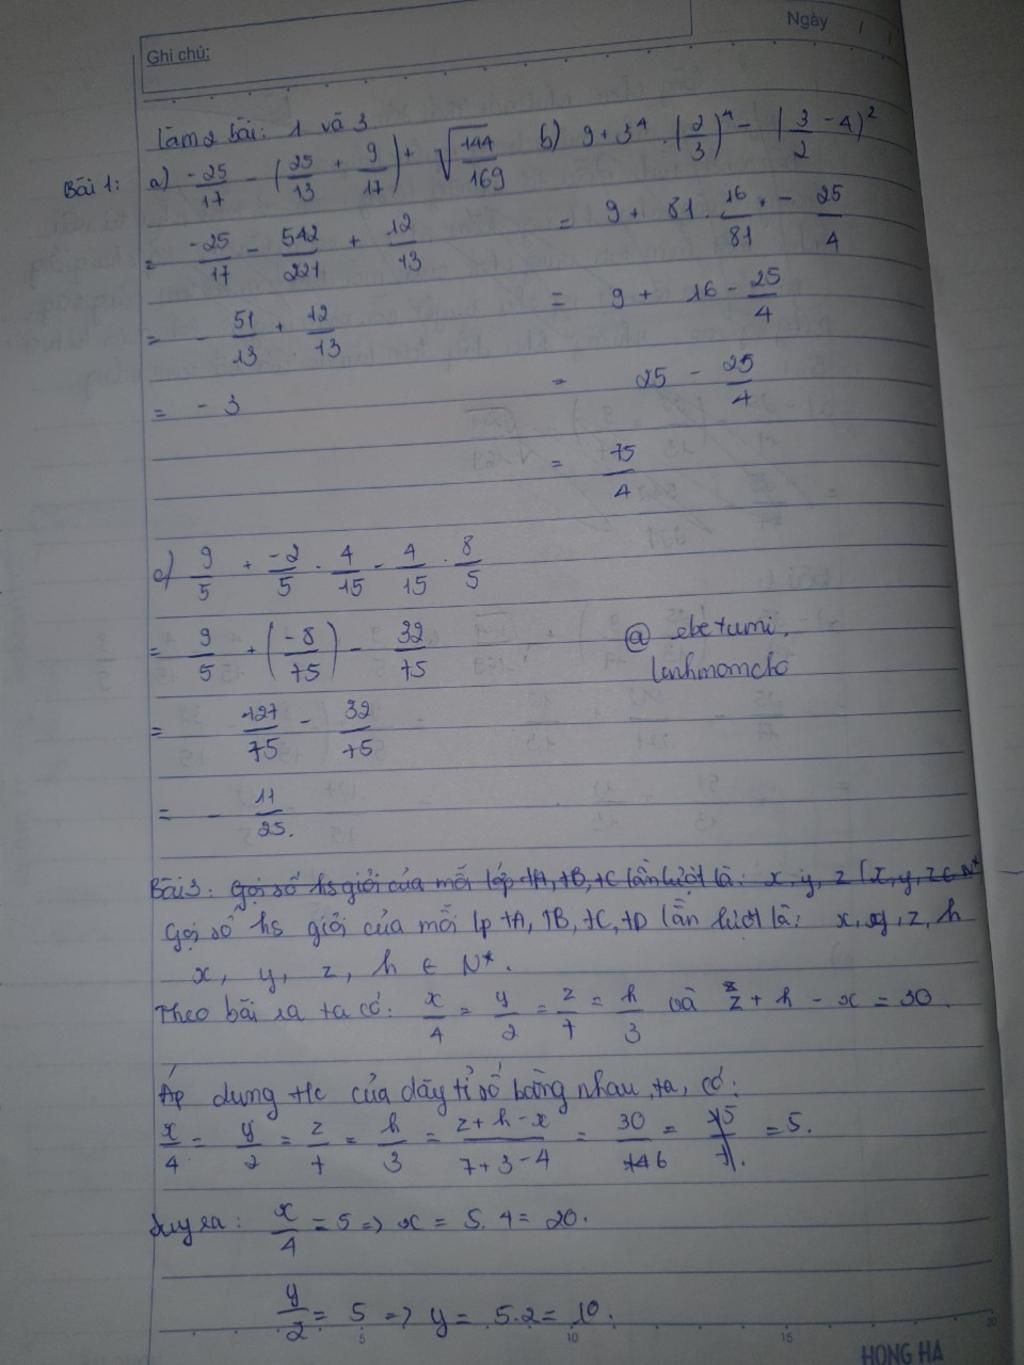 Ngày / /
Ghi chú:
làm 2 bài: 1 và 3
Bài 1: a) -25/17 - (25/13 + 9/17) + √144/169 b) 9 + 3^4 . (2/3)^4 - (3/2 - 4)^2
= -25/17 - 542/221 + 12/13 = 9 + 81 . 16/81 - 25/4
= - 51/13 + 12/13 = 9 + 16 - 25/4
= - 3 = 25 - 25/4
= 75/4
c) 9/5 + -2/5 . 4/15 - 4/15 . 8/5
= 9/5 + (-8/75) - 32/75 @ ebetumi.
lanhmomcho
= 127/75 - 32/75
= - 11/25.
Bài 3: Gọi số hs giỏi của mỗi lớp 7A, 7B, 7C lần lượt là: x, y, z (x, y, z ∈ N*
Gọi số hs giỏi của mỗi lp 7A, 7B, 7C, 7D lần lượt là: x, y, z, h
x, y, z, h ∈ N*.
Theo bài ra ta có: x/4 = y/2 = z/7 = h/3 và z + h - x = 30.
Áp dung t/c của dãy tỉ số bằng nhau, ta có:
x/4 = y/2 = z/7 = h/3 = z + h - x/7 + 3 - 4 = 30/6 = 5.
Suy ra: x/4 = 5 => x = 5.4 = 20.
y/2 = 5 => y = 5.2 = 10.
5 10 15 20
HONG HA